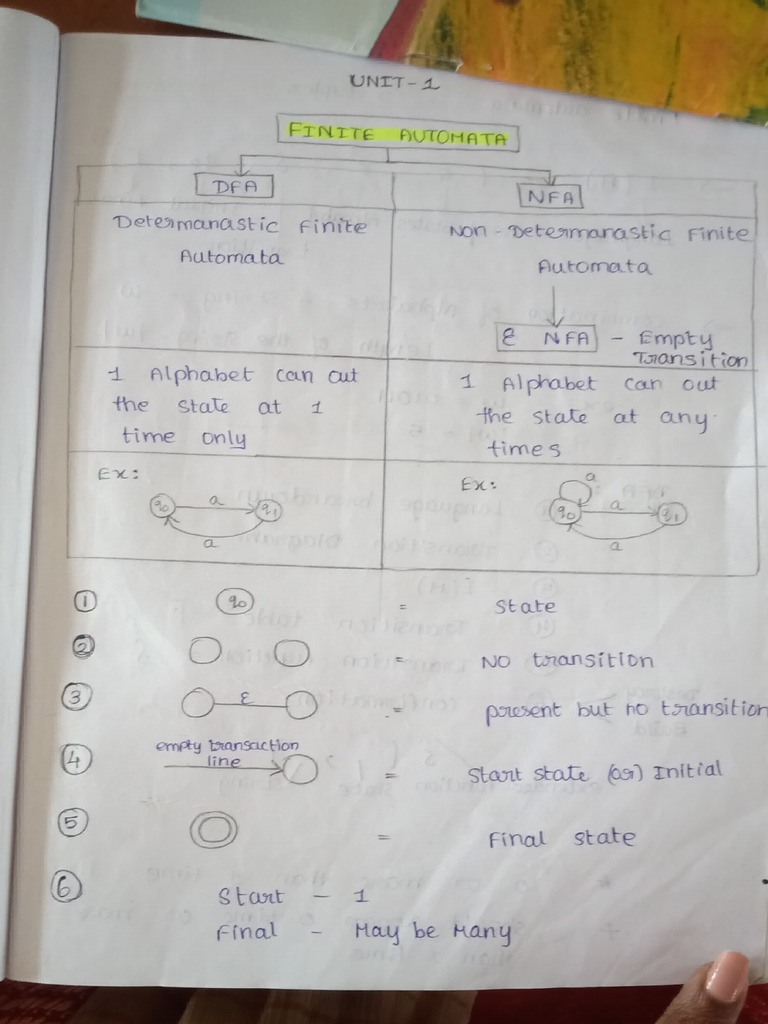 UNIT-1
FINITE AUTOMATA
DFA
NFA
Determanastic Finite
Automata
Non-Determanastic Finite
Automata
ε NFA - Empty
Transition
1 Alphabet can out
the state at 1
time only
1 Alphabet can out
the state at any
times
Ex:
q0 a q1
a
Ex:
a
q0 a q1
a
① q0 = State
② = NO transition
③ ε = present but no transition
④ empty transaction
line = Start state (or) Initial
⑤ = Final state
⑥ Start - 1
Final - May be Many